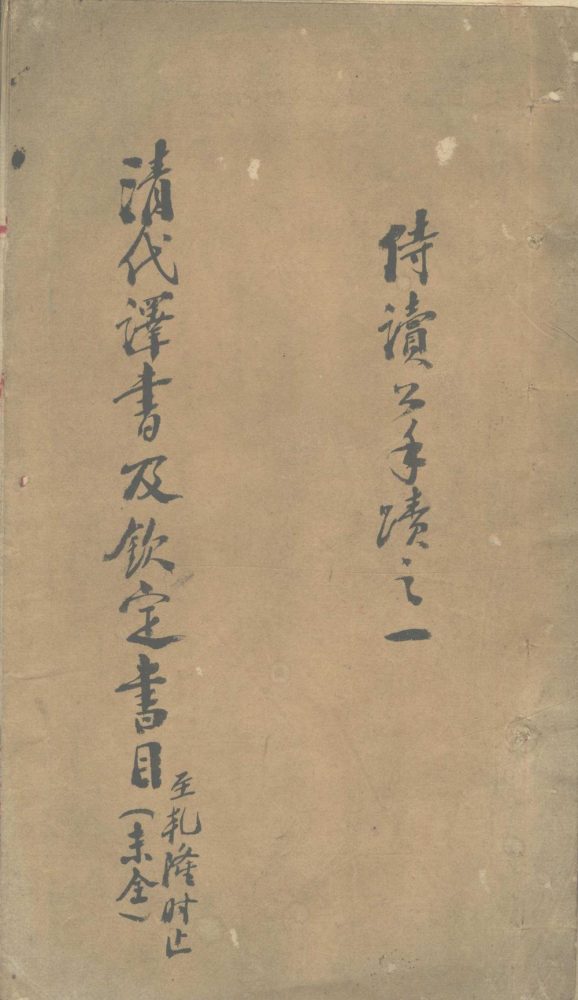 侍讀公手蹟之一
清代譯書及欽定書目
至乹隆时止
(未全)